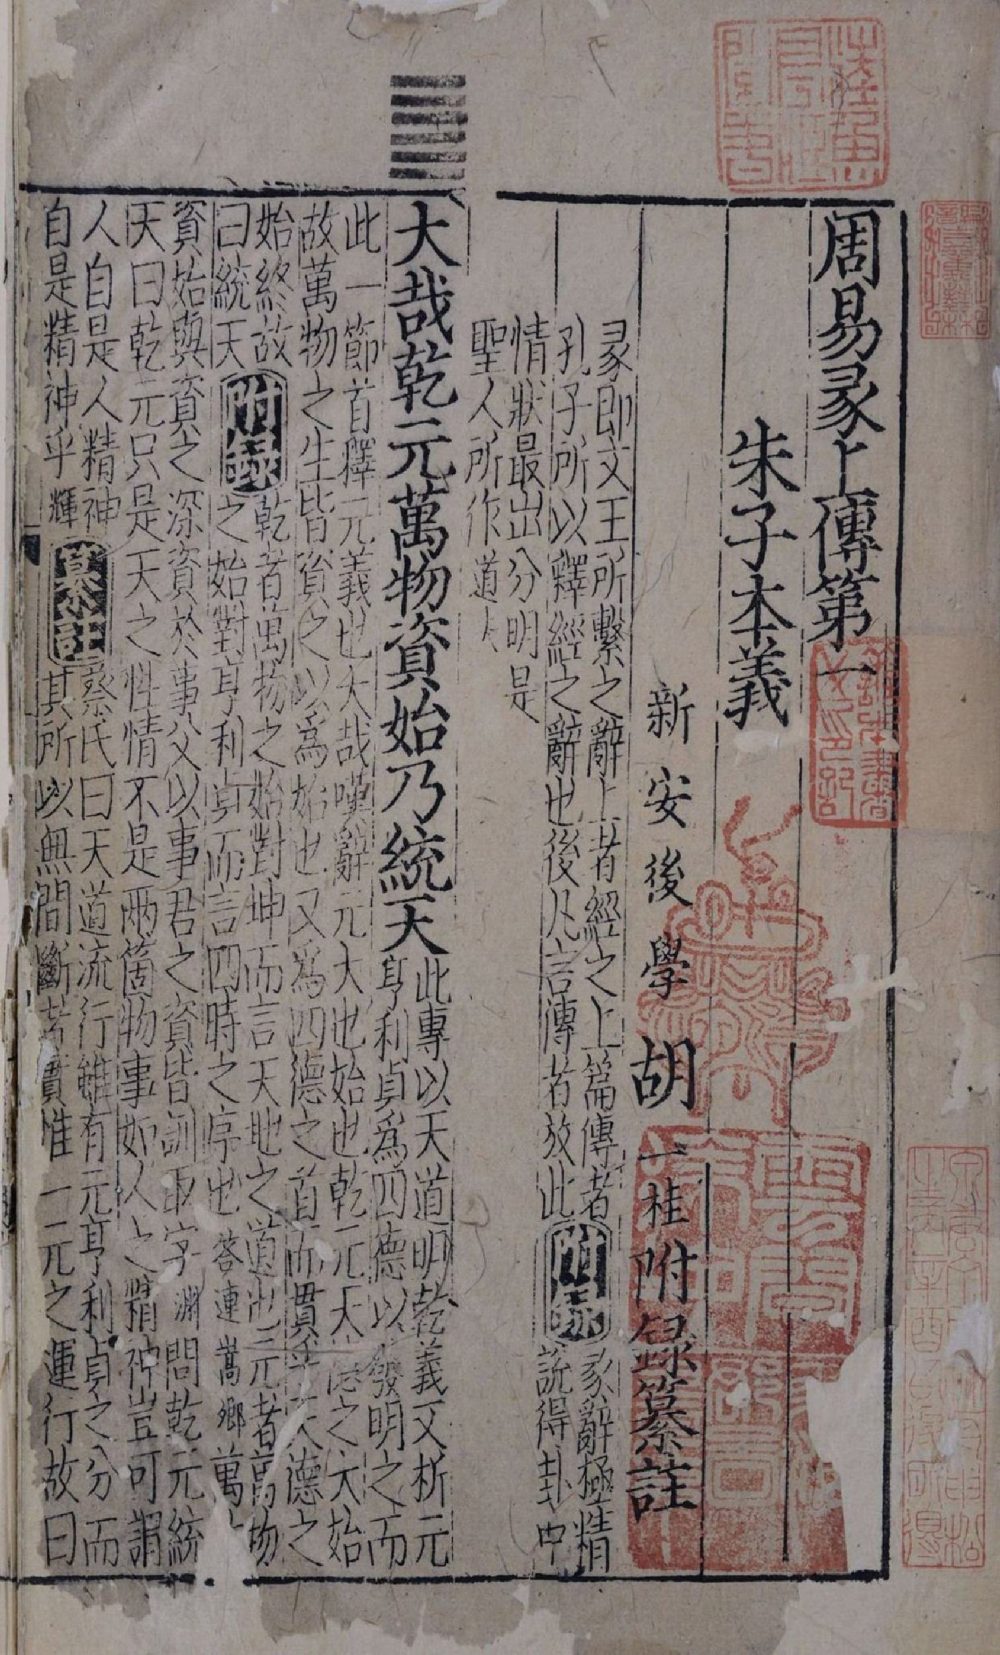 周易彖上傳第一
朱子本義
新安後學胡一桂附録纂註
彖即文王所繫之辭上者經之上篇傳者
孔子所以釋經之辭也後凡言傳者放此
附録
彖辭極精
說得卦中
情狀最出分明是
聖人所作道人
大哉乾元萬物資始乃統天
此專以天道明乾義又析元
亨利貞爲四德以發明之而
此一節首釋元義也大哉嘆辭元大也始也乾元天德之大始
故萬物之生皆資之以爲始也又爲四德之首而貫乎天德之
始終故
曰統天
附録
乾者萬物之始對坤而言天地之道也元者萬物
之始對亨利貞而言四時之序也 答連嵩鄉 萬
資始與資之深資於事父以事君之資皆訓取字 淵 問乾元統
天曰乾元只是天之性情不是兩箇物事如人之精神豈可謂
人自是人精神
自是精神乎 輝
纂註
蔡氏曰天道流行雖有元亨利貞之分而
其所以無間斷者實惟一元之運行故曰